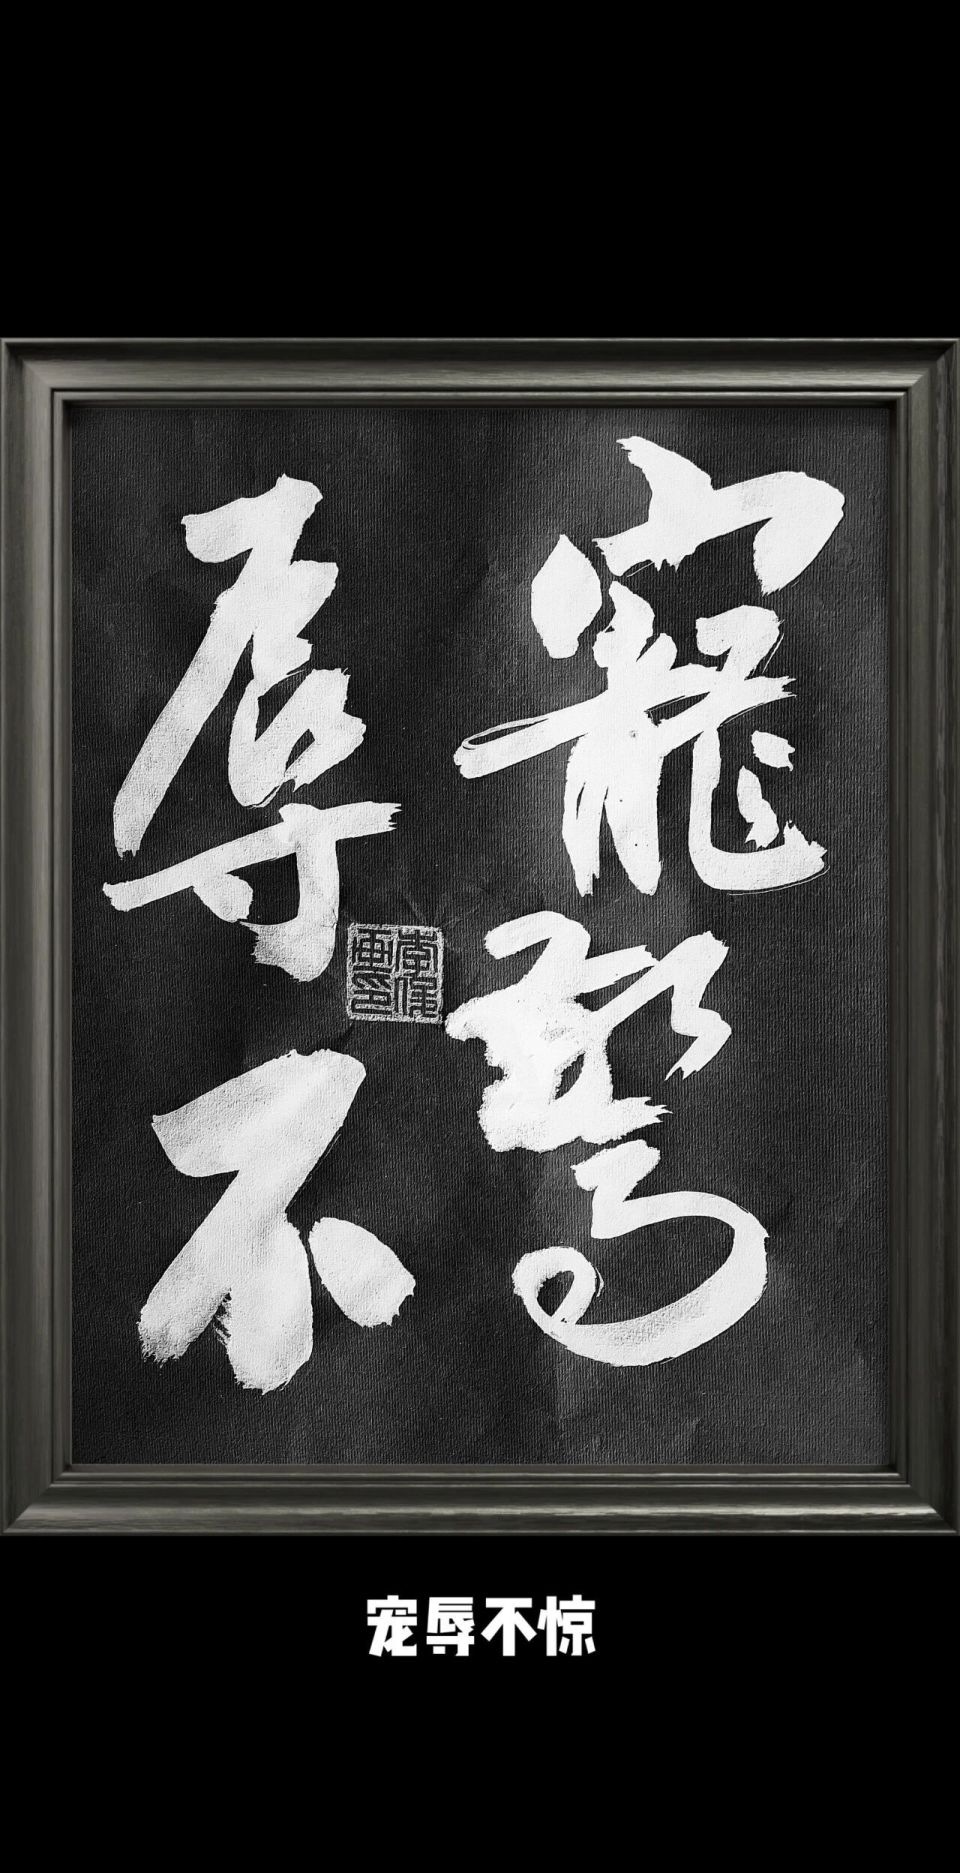 寵驚
辱不
宠辱不惊